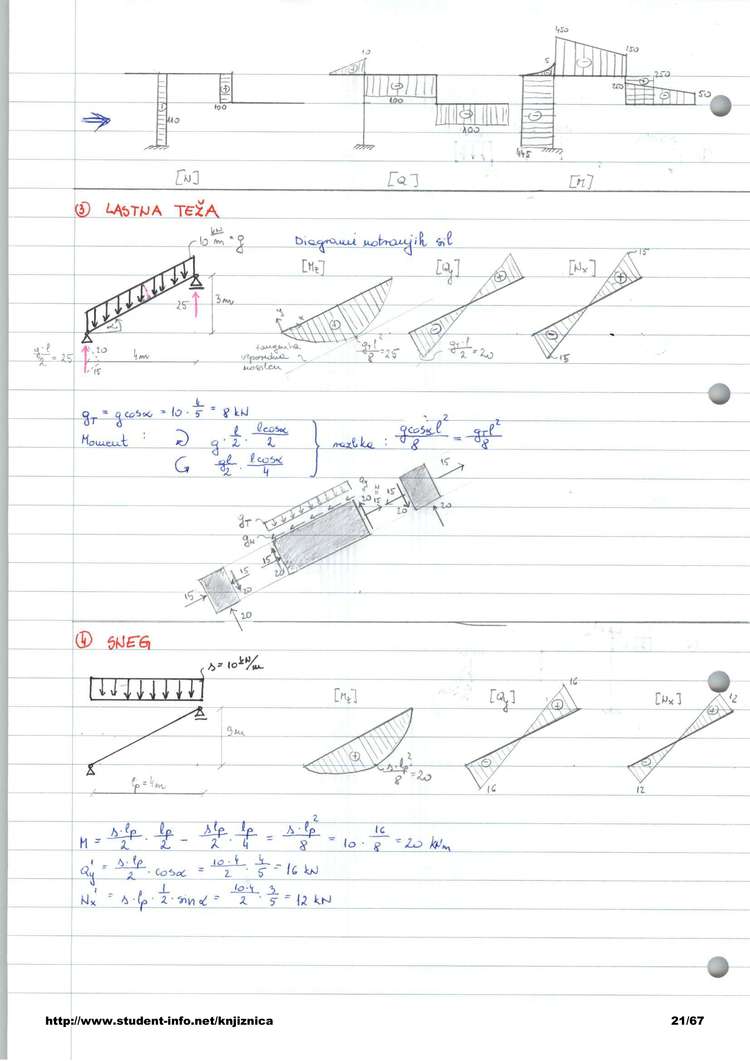 10
450
150
5
250
250
50
110
100
100
100
445
[N]
[Q]
[M]
③ LASTNA TEŽA
10 kN/m = g
Diagrami notranjih sil
[Mz]
[Qy]
[Nx]
15
25
3m
α
y
x
g·l/2 = 25
20
15
4m
tangenta
vzporedna
nosilcu
gT l²/8 = 25
gT·l/2 = 20
15
gT = g cosα = 10 · 4/5 = 8 kN
Moment :
g · l/2 · l cosα/2
gl/2 · l cosα/4
razlika : g cosα l²/8 = gT l²/8
15
15
20
15
20
gT
gN
15
20
15
20
15
20
④ SNEG
s = 10 kN/m
[Mz]
[Qy]
[Nx]
16
12
3m
s·lp²/8 = 20
lp = 4m
16
12
M = s·lp/2 · lp/2 - slp/2 · lp/4 = s·lp²/8 = 10 · 16/8 = 20 kNm
Qy' = s·lp/2 · cosα = 10·4/2 · 4/5 = 16 kN
Nx' = s·lp · 1/2 · sinα = 10·4/2 · 3/5 = 12 kN
http://www.student-info.net/knjiznica
21/67